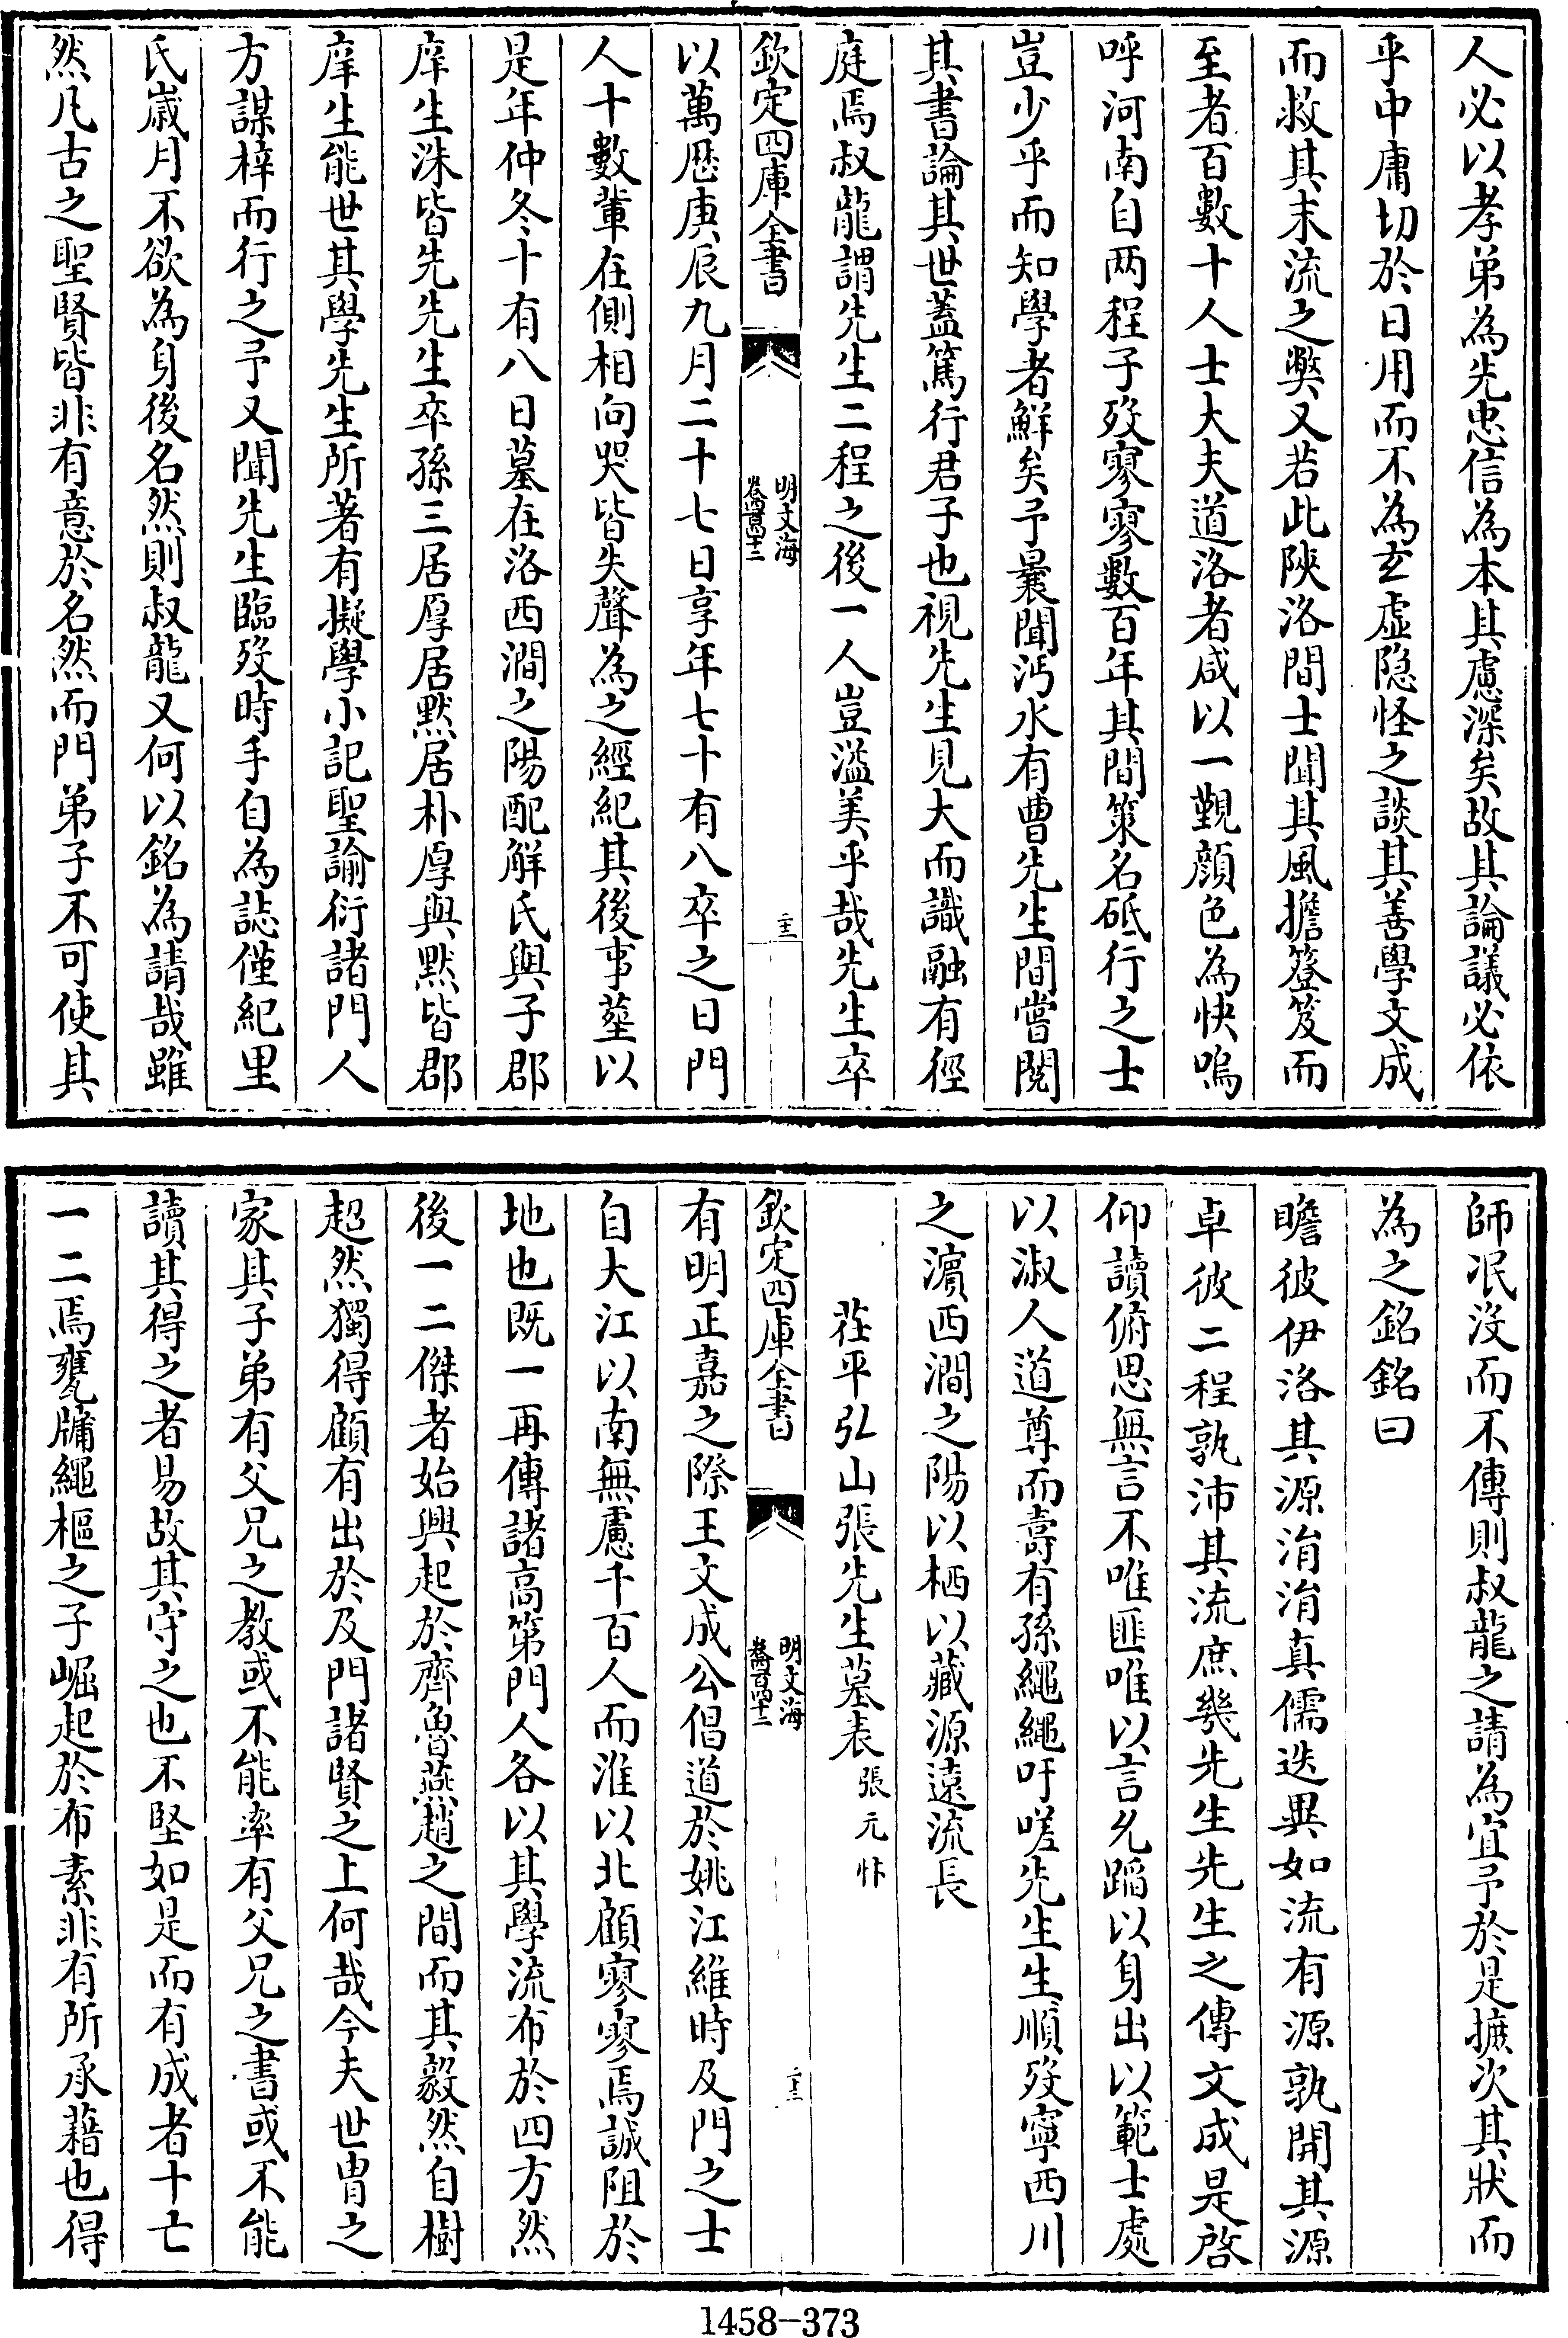 人必以孝弟為先忠信為本其慮深矣故其論議必依
乎中庸切於日用而不為玄虛隐怪之談其善學文成
而救其末流之獘又若此陜洛間士聞其風擔簦笈而
至者百數十人士大夫道洛者咸以一覲顔色為快嗚
呼河南自两程子歿寥寥數百年其間策名砥行之士
豈少乎而知學者鮮矣予曩聞沔水有曹先生間嘗閱
其書論其世蓋篤行君子也視先生見大而識融有徑
庭焉叔龍謂先生二程之後一人豈溢美乎哉先生卒
欽定四庫全書
明文海
卷四百四十二
二十三
以萬厯庚辰九月二十七日享年七十有八卒之日門
人十數輩在側相向哭皆失聲為之經紀其後事塟以
是年仲冬十有八日墓在洛西澗之陽配解氏與子郡
庠生洙皆先先生卒孫三居厚居默居朴厚與默皆郡
庠生能世其學先生所著有擬學小記聖諭衍諸門人
方謀梓而行之予又聞先生臨歿時手自為誌僅紀里
氏嵗月不欲為身後名然則叔龍又何以銘為請哉雖
然凡古之聖賢皆非有意於名然而門弟子不可使其
師泯沒而不傳則叔龍之請為宜予於是摭次其狀而
為之銘銘曰
瞻彼伊洛其源涓涓真儒迭異如流有源孰開其源
卓彼二程孰沛其流庶幾先生先生之傳文成是啓
仰讀俯思無言不唯匪唯以言允蹈以身出以範士處
以淑人道尊而壽有孫繩繩吁嗟先生生順歿寧西川
之濵西澗之陽以栖以藏源遠流長
茌平弘山張先生墓表張元忭
欽定四庫全書
明文海
卷四百四十二
二十三
有明正嘉之際王文成公倡道於姚江維時及門之士
自大江以南無慮千百人而淮以北顧寥寥焉誠阻於
地也既一再傳諸高第門人各以其學流布於四方然
後一二傑者始興起於齊魯燕趙之間而其毅然自樹
超然獨得顧有出於及門諸賢之上何哉今夫世冑之
家其子弟有父兄之教或不能率有父兄之書或不能
讀其得之者易故其守之也不堅如是而有成者十亡
一二焉甕牖繩樞之子崛起於布素非有所承藉也得
1458-373